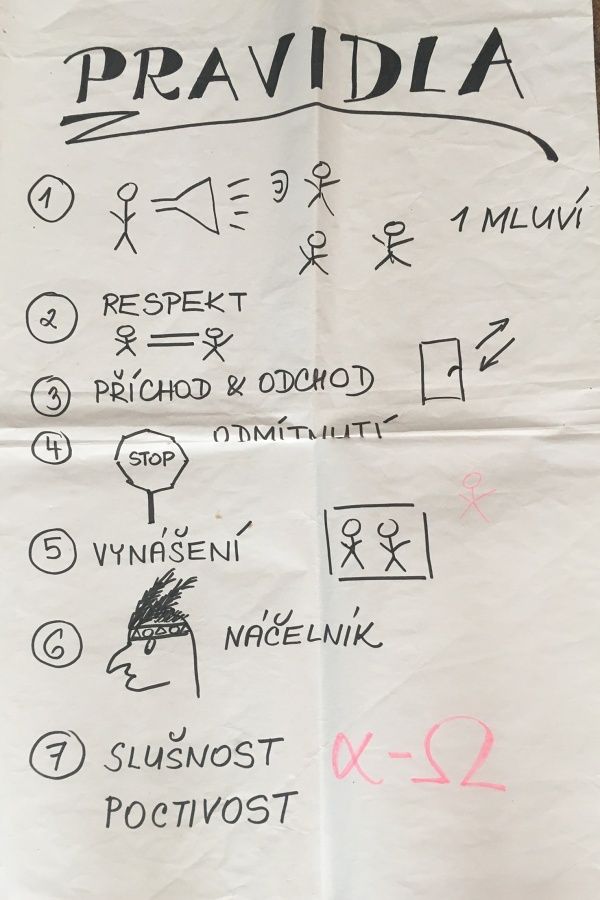 PRAVIDLA
1 1 MLUVÍ
2 RESPEKT
3 PŘÍCHOD & ODCHOD
4 STOP ODMÍTNUTÍ
5 VYNÁŠENÍ
6 NÁČELNÍK
7 SLUŠNOST α-Ω
POCTIVOST